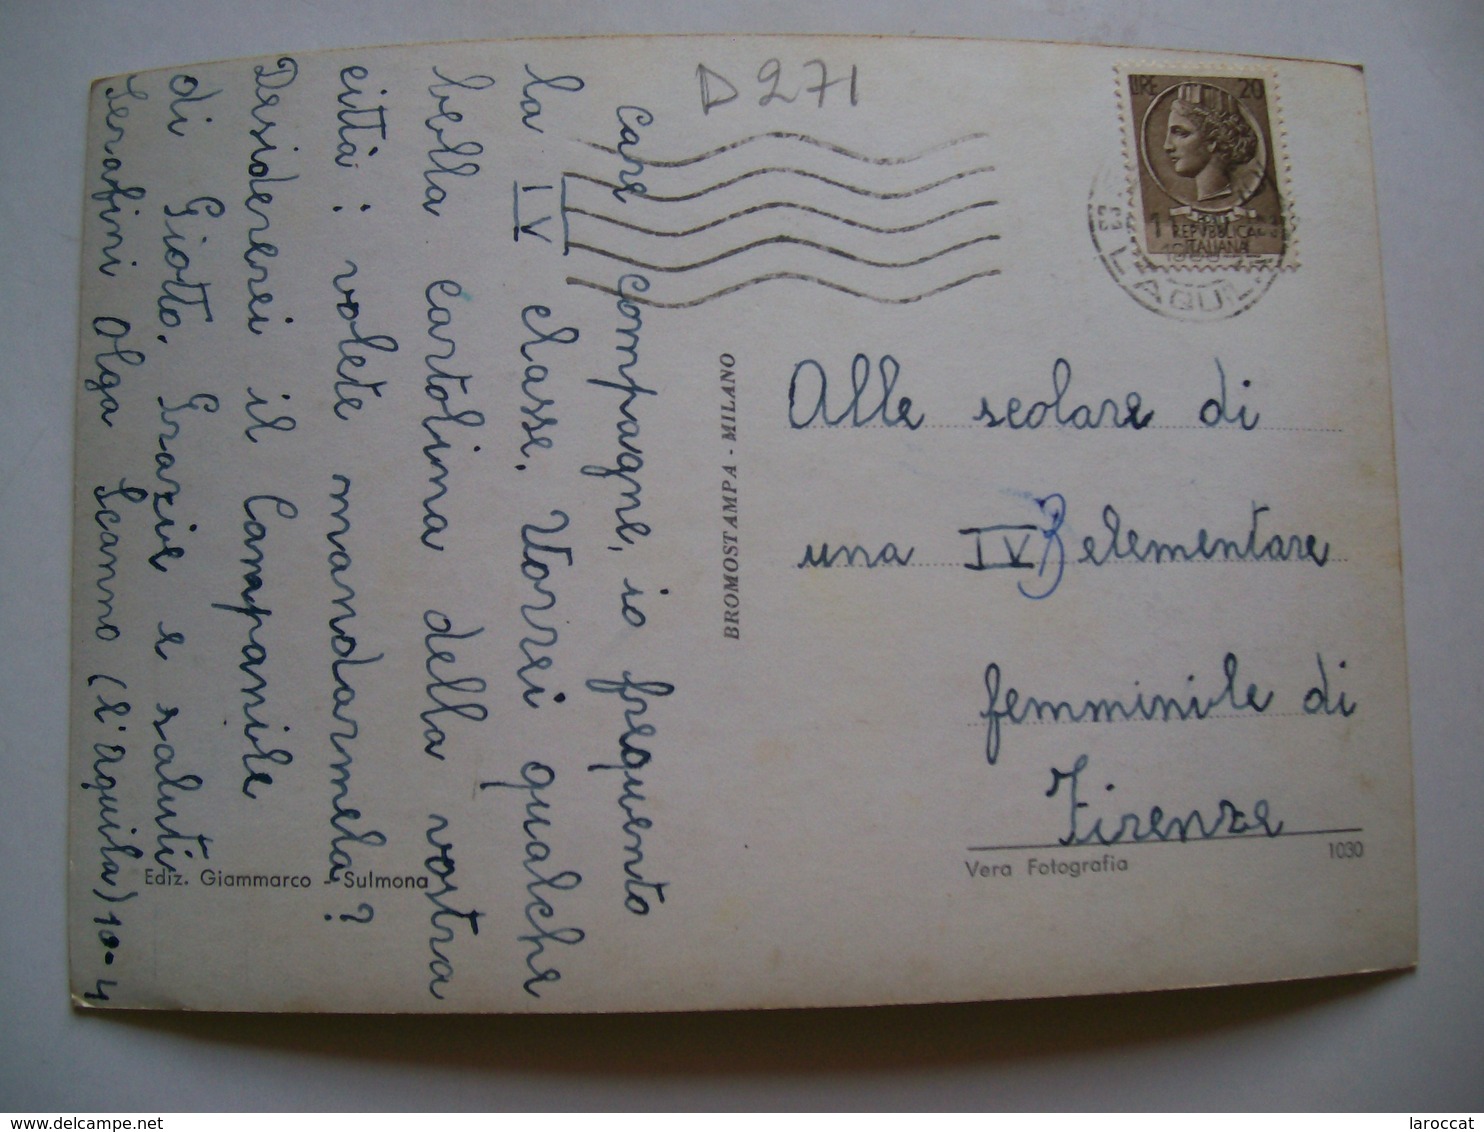 D 271
LIRE 20
POSTE
REPVBBLICA
ITALIANA
11
L'AQUILA
Care compagne, io frequento
la IV classe. Vorrei qualche
bella cartolina della vostra
città: volete mandarmela?
Desidererei il Campanile
di Giotto. Grazie e saluti.
Serafini Olga Scanno (l'Aquila) 10-4
Ediz. Giammarco - Sulmona
BROMOSTAMPA - MILANO
Alle scolare di
una IV elementare
femminile di
Firenze
Vera Fotografia
1030
delcampe.net
laroccat